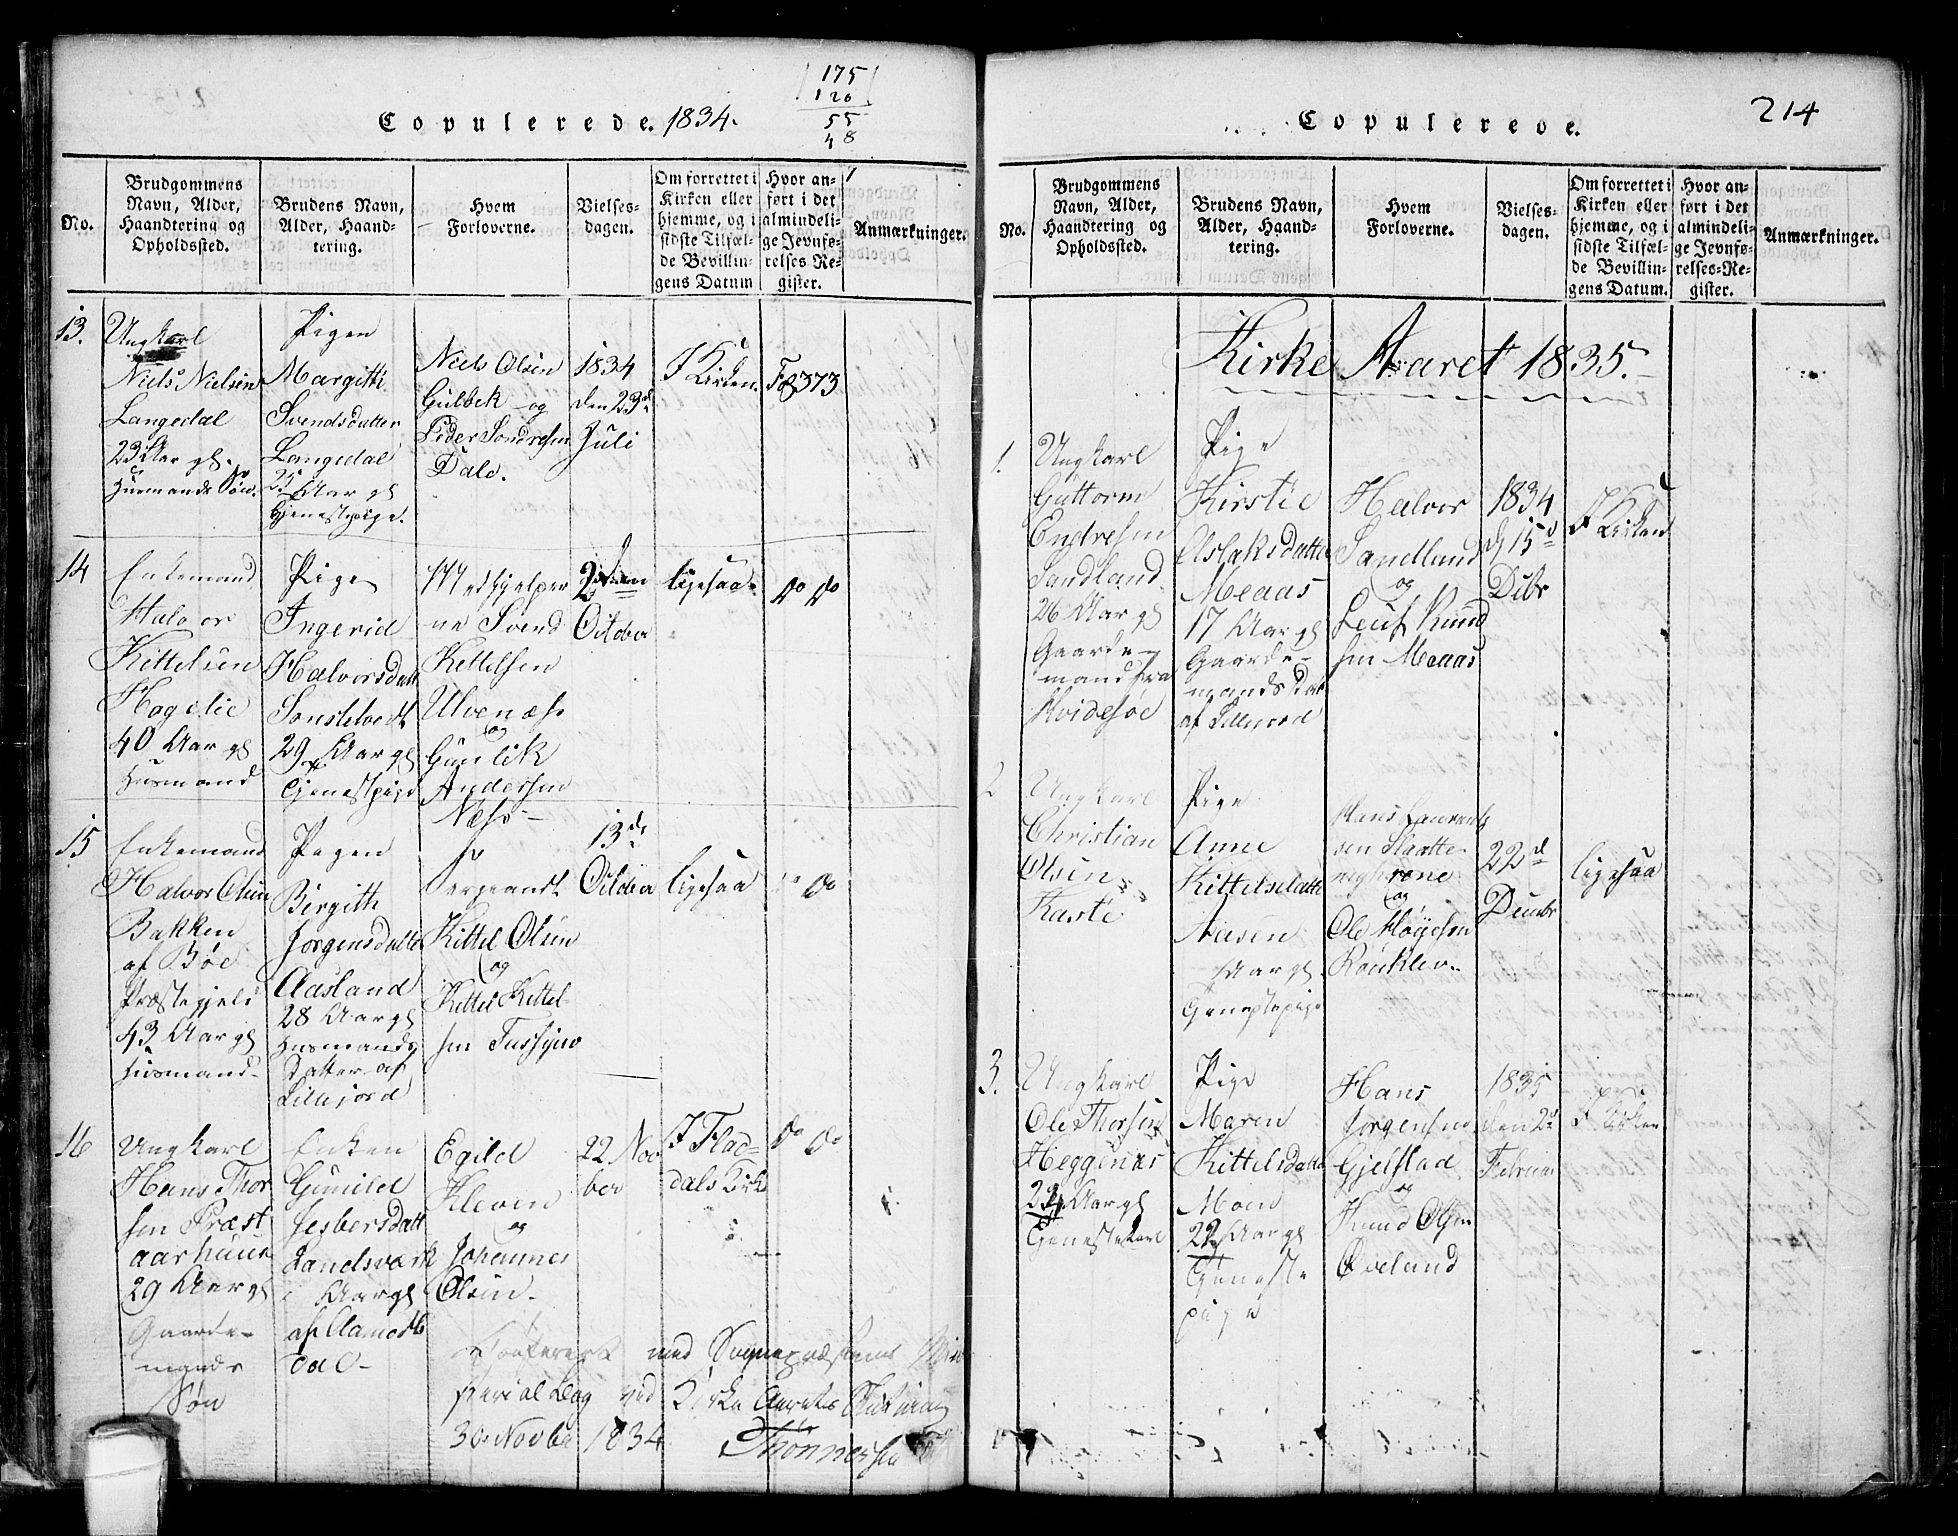 175
120
55
48
Copulerede. 1834.
No.
Brudgommens
Navn, Alder,
Haandtering og
Opholdssted.
Brudens Navn,
Alder, Haand-
tering.
Hvem
Forloverne.
Vielses-
dagen.
Om forrettet i
Kirken eller
hjemme, og i
sidste Tilfæl-
de Bevillin-
gens Datum
Hvor an-
ført i det
almindeli-
ge Jevnfø-
relses-Re-
gister.
Anmærkninger.
13.
Ungkarl
Niels Nielsen
Langedal
23 Aar gl.
Husmands Søn.
Pigen
Margithe
Svendsdatter
Langedal
25 Aar gl
Tjenestpige.
Niels Olsen
Gulbek og
Peder Sondresen
Dale.
1834
den 23d
Juli
I Kirken.
Fol 373
14
Enkemand
Halvor
Kittelsen
Hagelie
40 Aar gl
Husmand
Pigen
Ingerid
Halvorsdatt
29 Aar gl
Tjenestpige
Medhjelper
ne Svend
Kettelsen
Ulvenæs
og
Gunlik
Andersen
Næss
October
ligesaa
do do
15
Enkemand
Halvor Olsen
Bakken
af Bøe
Præstegjeld
43 Aar gl
Husmand
Pigen
Birgith
Jorgensdatte
Aasland
28 Aar gl
Husmands
Datter af
Lilliejord
Sergeandt
Kittel Olsen
og
Kittel Kittel-
sen
13de
October
ligesaa
do do
16
Ungkarl
Hans Thor
sen Præst
aarhuus
29 Aar gl
Gaarde-
mands
Søn
Enken
Gunild
Jesbersdatt
Landsværk
Aar gl
af Aamods
dal
Egild
Kleven
og
Johannes
Olsen
22 Nov
ber
I Flad-
dals Kirk
do do
med Sognepræstens
ved Kirke Aarets Slutning
30 Novbr 1834
Thønnessen
214
Copulerede.
No.
Brudgommens
Navn, Alder,
Haandtering og
Opholdssted.
Brudens Navn,
Alder, Haand-
tering.
Hvem
Forloverne.
Vielses-
dagen.
Om forrettet i
Kirken eller
hjemme, og i
sidste Tilfæl-
de Bevillin-
gens Datum.
Hvor an-
ført i det
almindeli-
ge Jevnfø-
relses-Re-
gister.
Anmærkninger.
Kirke Aaret 1835.
1.
Ungkarl
Guttorm
Endresen
Sandland
26 Aar gl
Gaarde-
mand fra
Hvidesøe
Pige
Kirstie
Aslaksdatte
Meaas
17 Aar gl
Gaarde-
mands Dat
af Lilliejord
Halvor
Sandland
og
Leuf Knud
sen Meaas
1834
d 15d
Debr
I Kirken
2
Ungkarl
Christian
Olsen
Kaste
Pige
Anne
Kittelsdatte
Aasen
Aar gl
Tjenestepige
Hans Laurents
sen Slaatte
og
Ole Høyesen
22d
Decmbr
ligesaa
3.
Ungkarl
Ole Thorsen
Heggenæs
Aar gl
Tjenestekarl
Pige
Maren
Kittelsdatte
Moen
22 Aar gl
Tjeneste
pige
Hans
Jorgensen
Gjelstad
og
Knud Olsen
Øveland
1835
den 2d
Februar
I Kirken